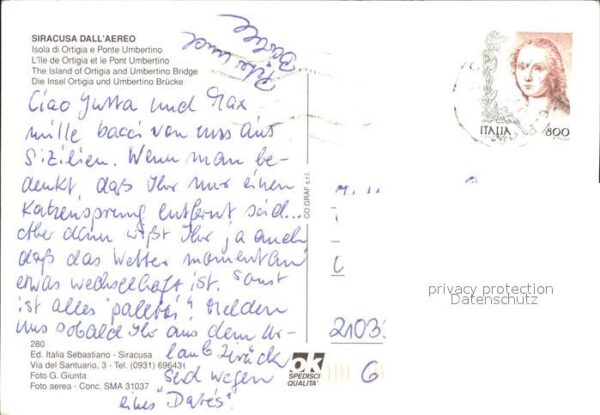 SIRACUSA DALL'AEREO
Isola di Ortigia e Ponte Umbertino
L'île de Ortigia et le Pont Umbertino
The Island of Ortigia and Umbertino Bridge
Die Insel Ortigia und Umbertino Brücke
Ciao Jutta und Max
mille bacci von uns aus
Sizilien. Wenn man be-
denkt, daß Ihr nur einen
Katzensprung entfernt seid...
Aber dann wißt Ihr ja auch,
daß das Wetter momentan
etwas wechselhaft ist. Sonst
ist alles "paletti"! Melden
uns sobald Ihr aus dem Ur-
laub zurück
seid wegen
eines "Dates".
Peter und
280
Ed. Italia Sebastiano - Siracusa
Via del Santuario, 3 - Tel. (0931) 69643
Foto G. Giunta
Foto aerea - Conc. SMA 31037
CO.GRAF s.r.l.
ok
SPEDISCI
QUALITA'
ITALIA
800
2103
6
privacy protection
Datenschutz